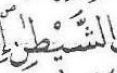 الشَّيْطٰنِ